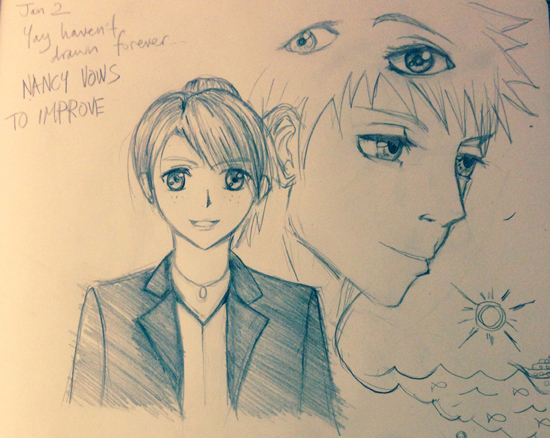 Jan 2
Yay haven't
drawn forever...
NANCY VOWS
TO IMPROVE